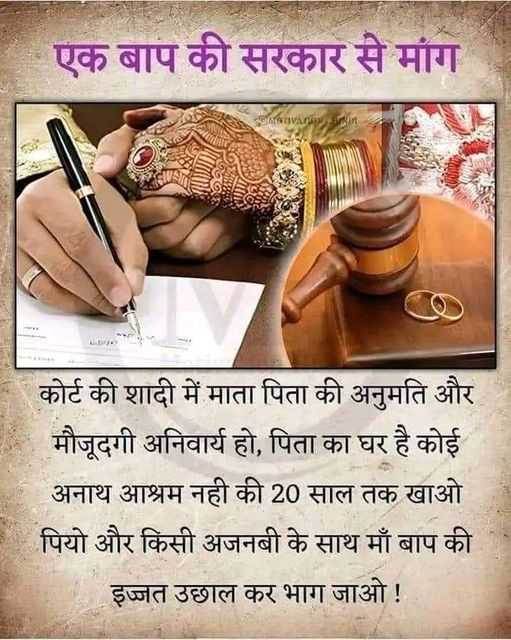 एक बाप की सरकार से मांग
कोर्ट की शादी में माता पिता की अनुमति और
मौजूदगी अनिवार्य हो, पिता का घर है कोई
अनाथ आश्रम नही की 20 साल तक खाओ
पियो और किसी अजनबी के साथ माँ बाप की
इज्जत उछाल कर भाग जाओ !